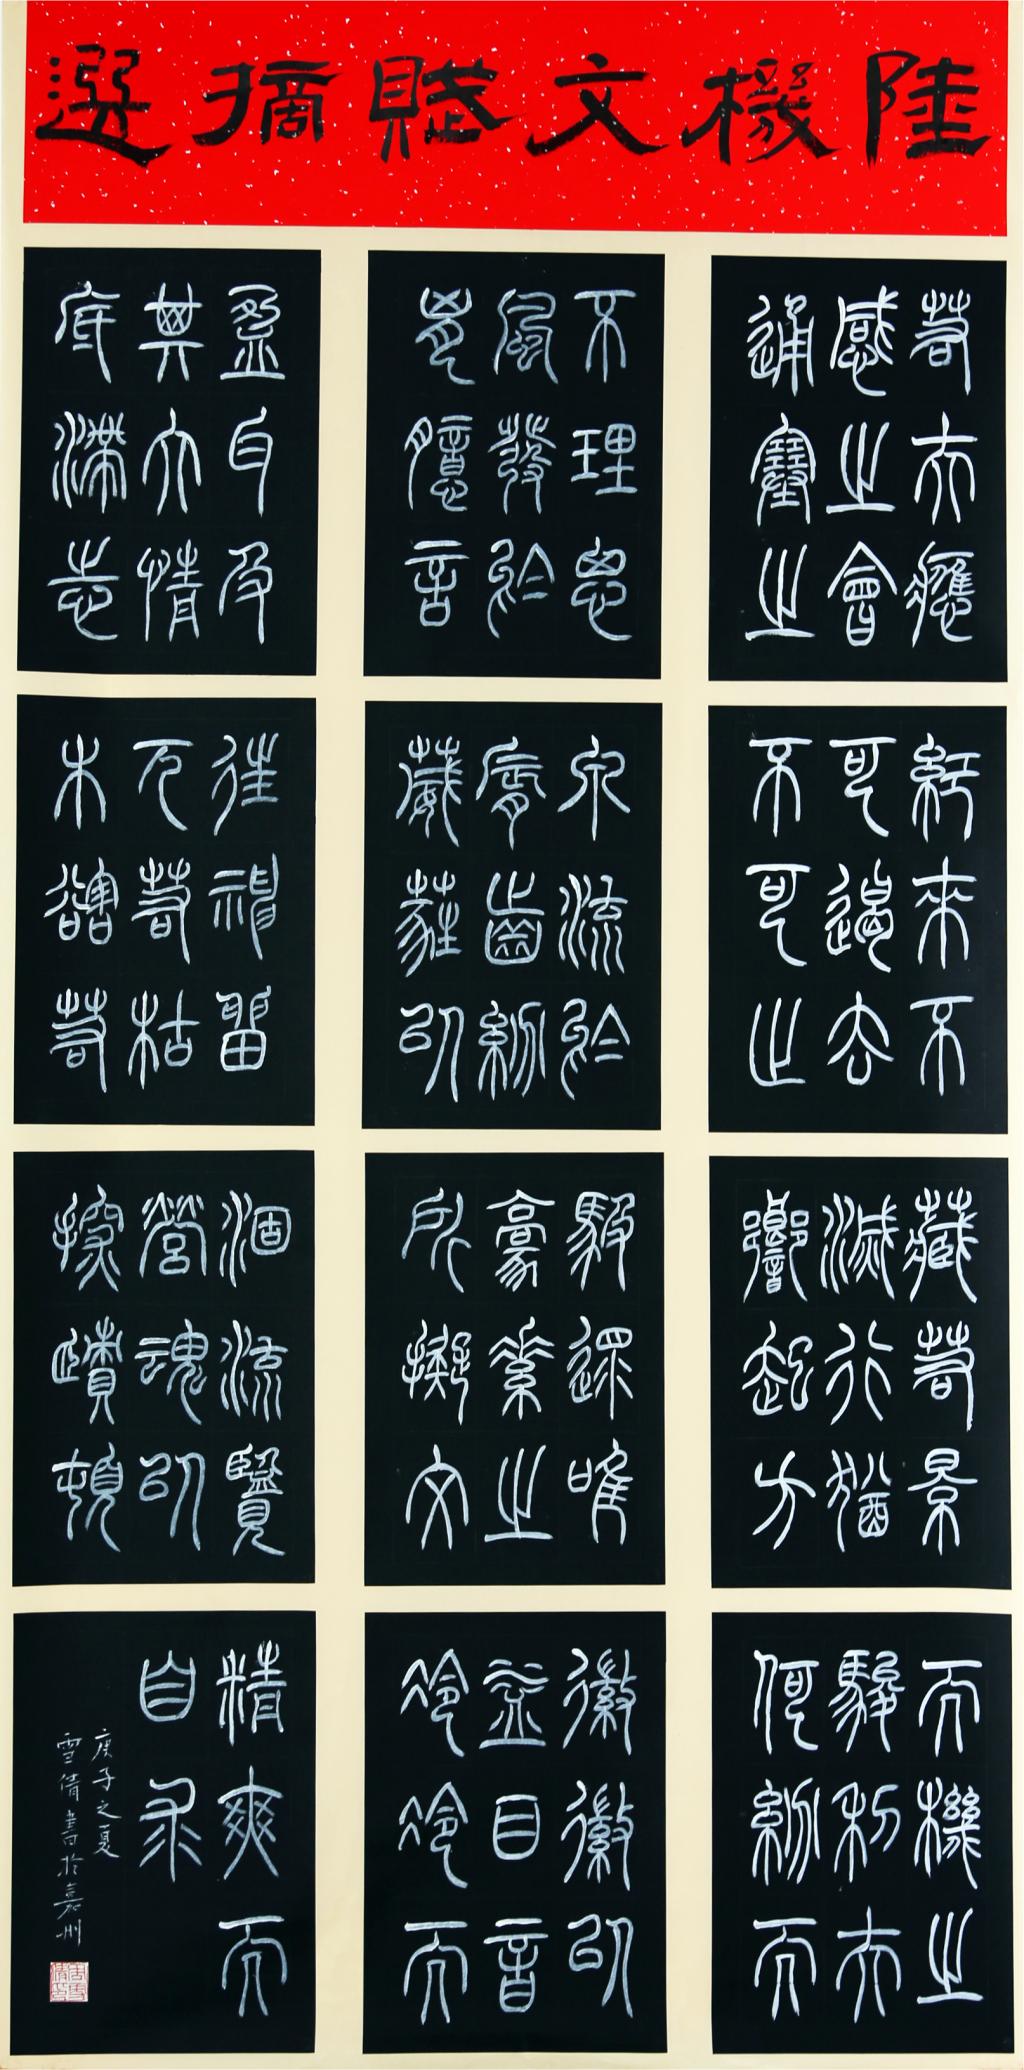 陸機文賦摘選
若夫應
感之會
通塞之
紀來不
可遏去
不可止
藏若景
滅行猶
響起方
天機之
駿利夫
何紛而
不理思
風發於
胸臆言
泉流於
唇齒紛
葳蕤以
馺遝唯
毫素之
所擬文
徽徽以
益目音
冷冷而
盈耳及
其六情
底滯志
往神留
兀若枯
木豁若
涸流覽
營魂以
探賾頓
精爽而
自求
庚子之夏
雪倩書於嘉州